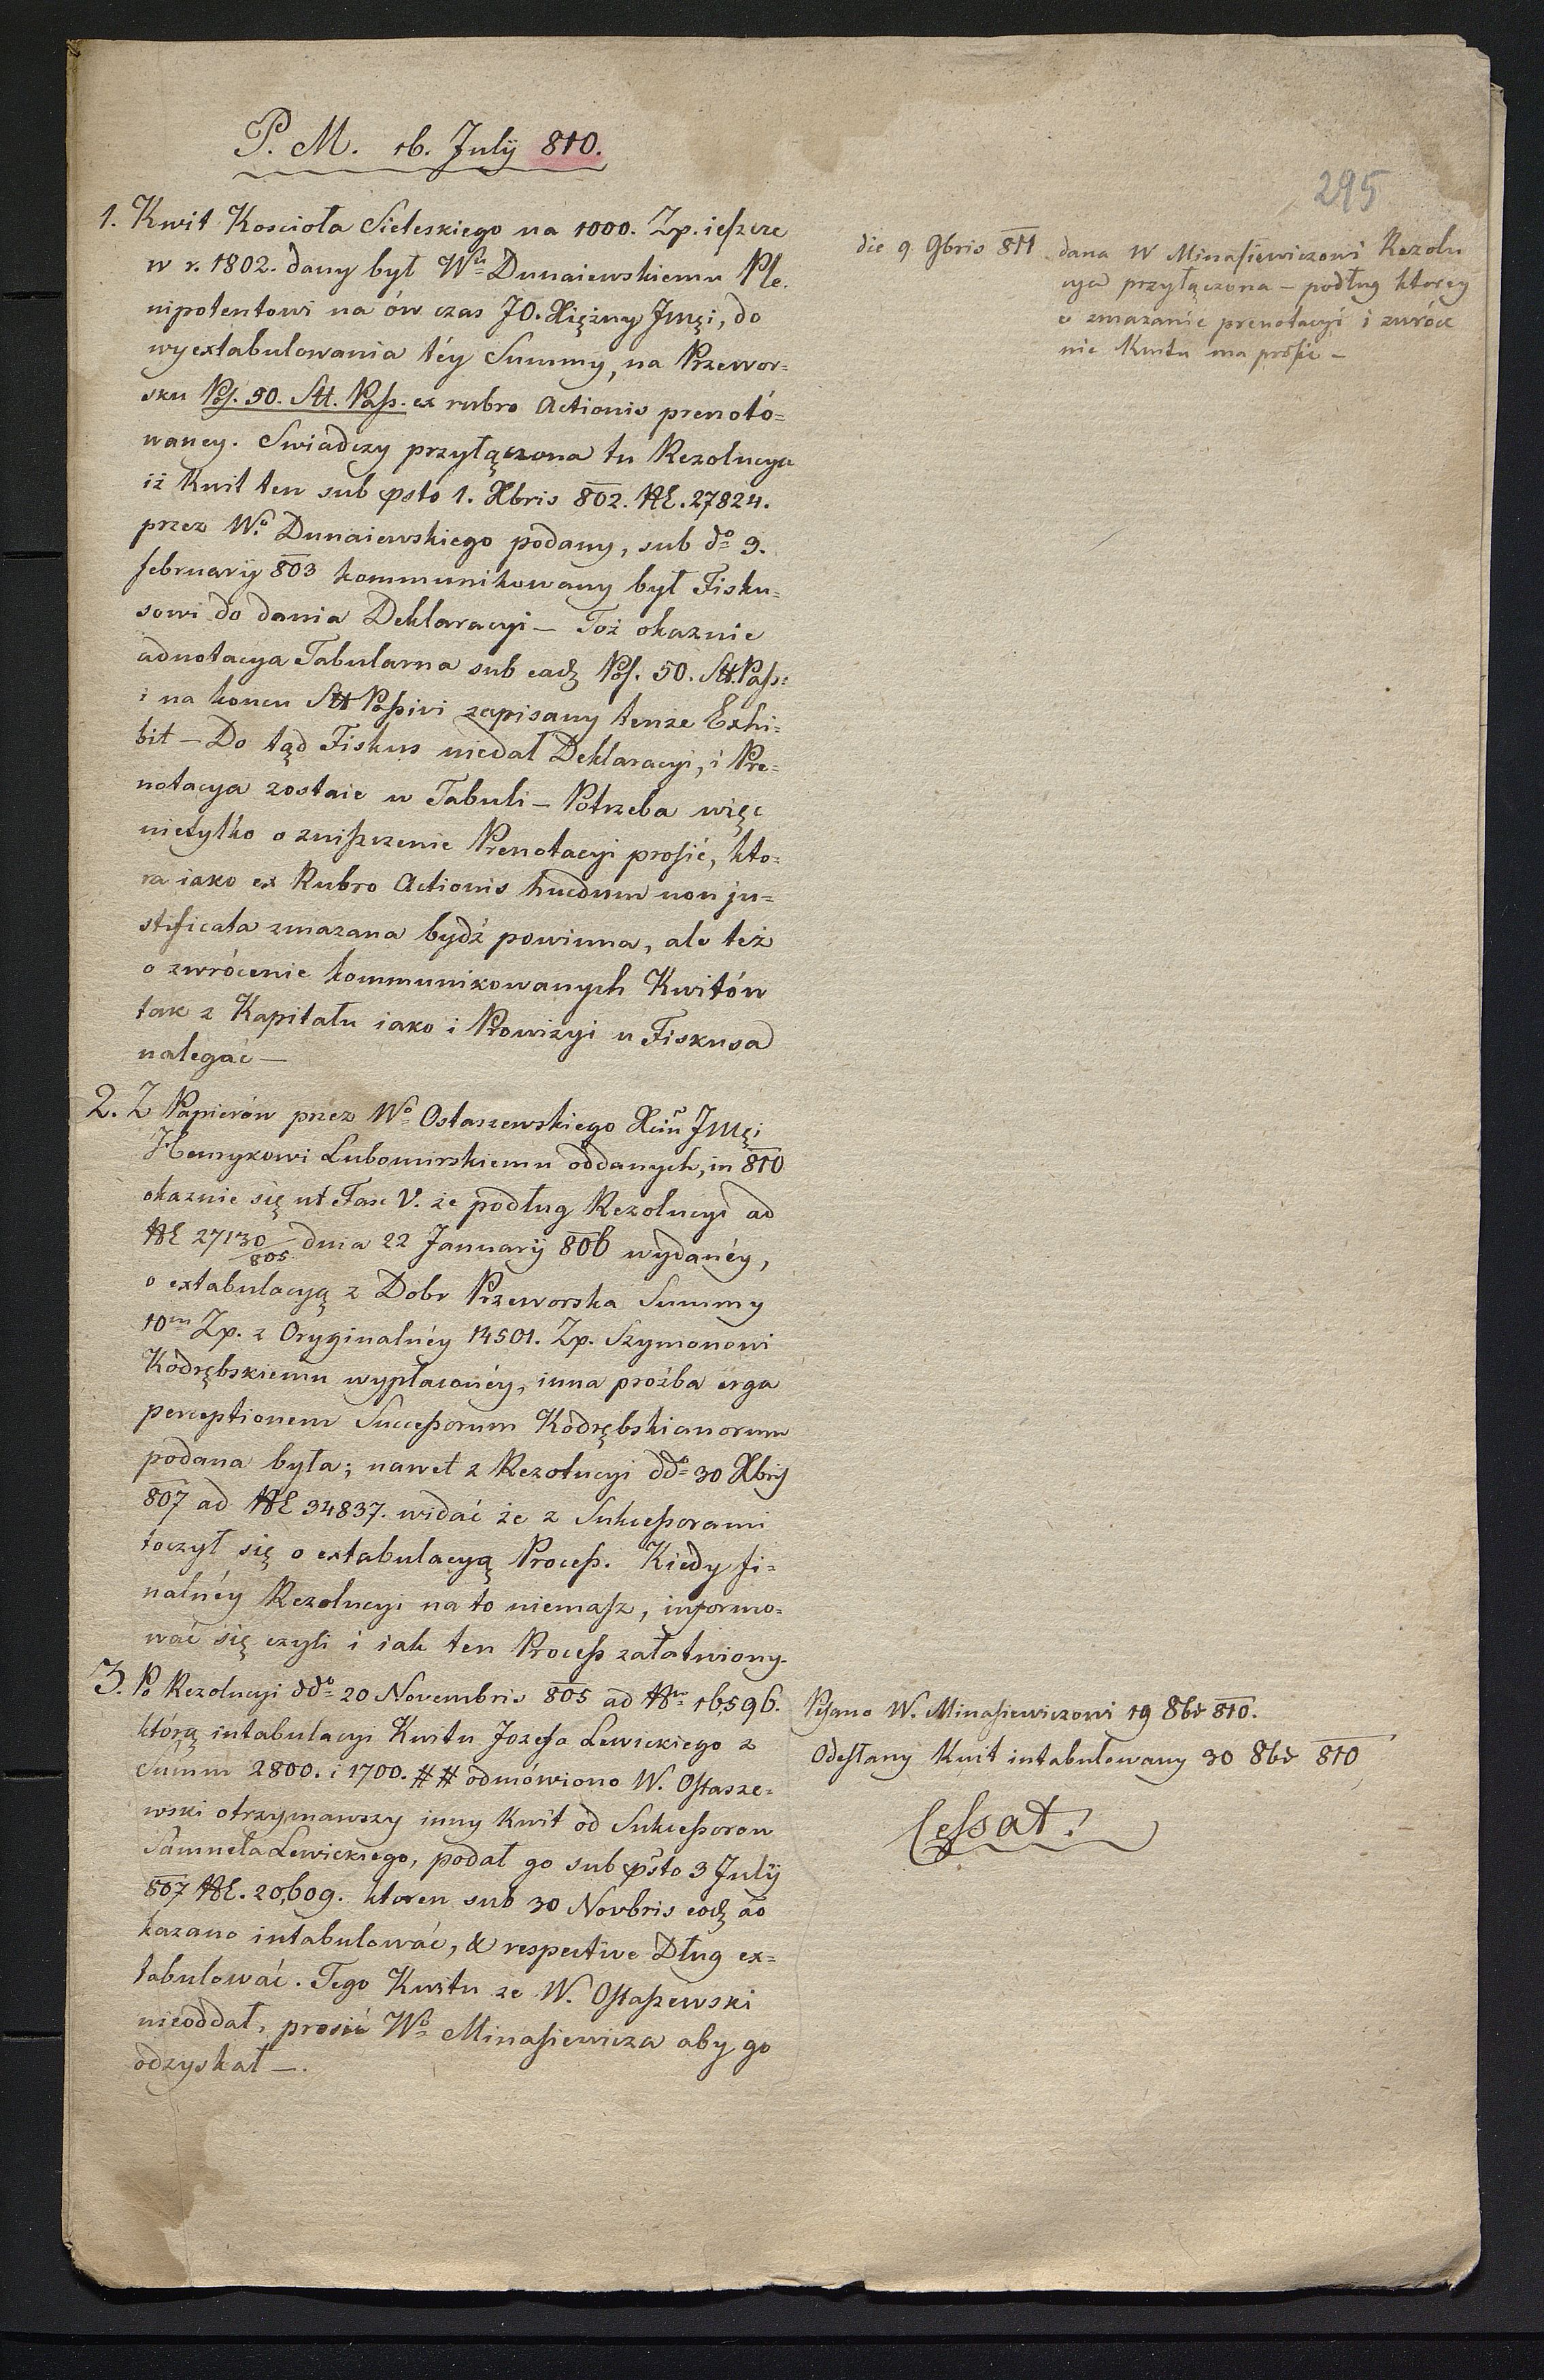 P. M. 16. July 810.
295
1. Kwit Koscioła Sieteskiego na 1000. Zp. ieszcze
w r. 1802. dany był Wu Dunaiewskiemu Ple.
nipotentowi na ów czas JO. Xiężny Jmći, do
wyextabulowania téy Summy, na Przewor=
sku Pos. 50. Stt. Pass. ex rubro Actionis prenotó=
waney. Swiadczy przyłączona tu Rezolucya
iż Kwit ten sub psto 1. Xbris 802. NE. 27824.
przez Wo Dunaiewskiego podany, sub do 9.
february 803 kommunikowany był Fisku=
sowi do dania Deklaracyi — Toż okazuie
adnotacya Tabularna sub eadz Pos. 50. Stt. Pass:
i na koncu Stt Passivi zapisany tenze Exhi=
bit — Do tąd Fiskus niedał Deklaracyi, i Pre=
notacya zostaie w Tabuli — Potrzeba więc
nietylko o zniszczenie Prenotacyi prosić, kto=
ra iako ex Rubro Actionis hucdum non ju=
stificata zmazana bydź powinna, ale też
o zwrócenie kommunikowanych Kwitów
tak z Kapitału iako i Prowizyi u Fiskusa
nalegać —
die 9 9bris 811 dana W Minasiewiczowi Rezolu
cya przyłączona — podług ktorey
o zmazanie prenotacyi i zwróce
nie Kwitu ma prosić —
2. Z Papierów przez Wo Ostaszewskiego Xciu Jmći
Henrykowi Lubomirskiemu oddanych, in 810
okazuie się ut Fasc V. że podług Rezolucyi ad
NE 27130/805 dnia 22 January 806 wydanéy,
o extabulacyą z Dobr Przeworska Summy
10m Zp. z Oryginalnéy 14501. Zp. Szymonowi
Kodrębskiemu wypłaconéy, inna proźba erga
perceptionem Successorum Kodrębskianorum
podana była; nawet z Rezolucyi ddo 30 Xbris
807 ad NE 34837. widać że z Sukcessorami
toczył się o extabulacyą Process. Kiedy fi=
nalnéy Rezolucyi na to niemasz, informo=
wać się czyli i iak ten Process załatwiony.
3. Po Rezolucyi ddo 20 Novembris 805 ad Nrm 16,596.
którą intabulacyi Kwitu Jozefa Lewickiego z
Summ 2800. i 1700. ## odmówiono W. Ostasze=
wski otrzymawszy inny Kwit od Sukcessorow
Samuela Lewickiego, podał go sub psto 3 July
807 NE. 20,609. ktoren sub 30 Novbris eodz ao
kazano intabulować, & respective Dług ex=
tabulować. Tego Kwitu ze W. Ostaszewski
nieoddał, prosić Wo Minasiewicza aby go
odzyskał —.
Pisano W. Minasiewiczowi 19 8br 810.
Odesłany Kwit intabulowany 30 8br 810
Cessat.